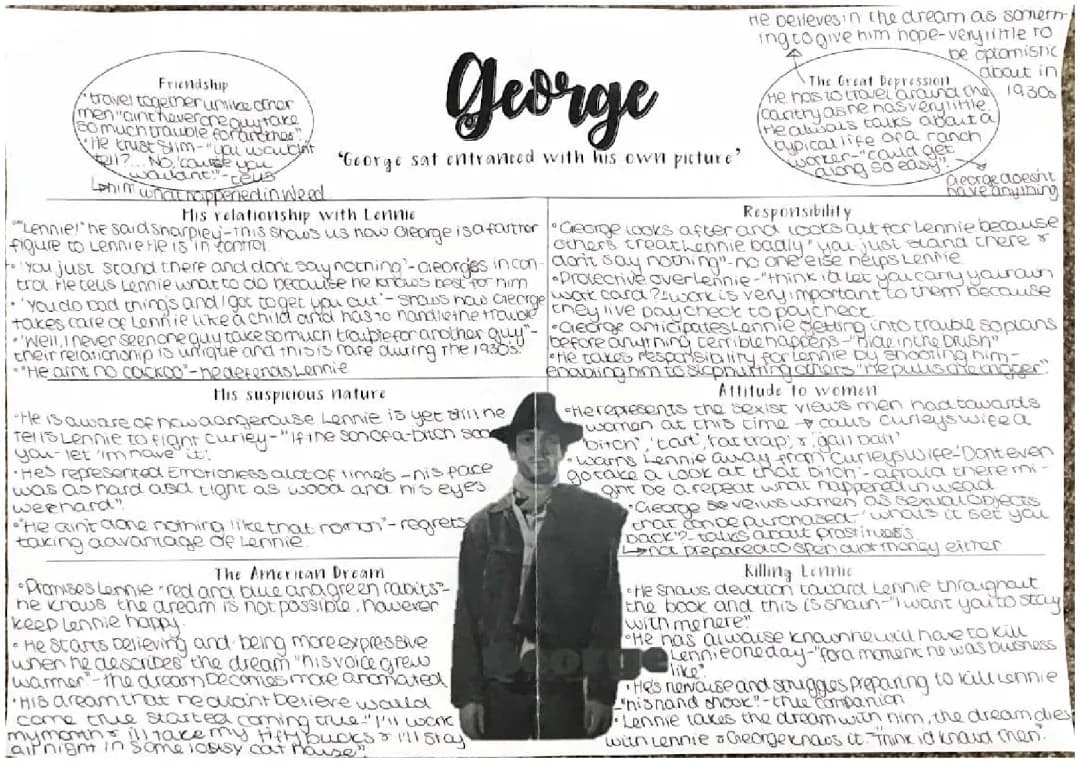 He believes in the dream as someth-
ing to give him hope-very little to
be optomistic
about in
1930s
George
'George sat entranced with his own picture'
Friendship
"travel together unlike other
men "aint never one guy take
so much trouble for another"
"He trust Slim-"you wouldn't
tell?... No, 'cause you
wouldn't."-tells
↳him what happened in Weed
The Great Depression
He has to travel around the
cantry as he has very little.
He always talks about a
typical life of a ranch
worker-"could get
along so easy"
George doesnt
have anything
His relationship with Lennie
•"Lennie!" he said sharpley-this shows us how George is a father
figure to Lennie He is in control.
•'You just stand there and don't say nothing'-Georges in con-
trol. He tells Lennie what to do because he knows best for him
•'You do bad things and I got to get you out'-shows how George
takes care of Lennie like a child and has to handle the trouble
•'Well, I never seen one guy take so much trouble for another guy"-
their relationship is unique and this is rare during the 1930s.
•"He aint no cuckoo"-he defends Lennie
Responsibility
•George looks after and looks out for Lennie because
others treat Lennie badly "you just stand there &
don't say nothing"-no one else helps Lennie
•Protective over Lennie-"think i'd let you carry your own
work card?" work is very important to them because
they live paycheck to paycheck.
•George anticipates Lennie getting into trouble so plans
before anything terrible happens-"hide in the brush"
•He takes responsibility for Lennie by shooting him-
enabling him to stop hurting others "He pulls the trigger."
His suspicious nature
•He is aware of how dangerouse Lennie is yet still he
tells Lennie to fight Curley-"If the son-of-a-bitch soc
you-let 'im have it'.
•He's represented Emotionless alot of time's-his face
was as hard and tight as wood and his eyes
wer hard".
•"He ain't done nothing like that no mon"-regrets
taking advantage of Lennie.
Attitude to women
•He represents the sexist views men had towards
women at this time → calls curleys wife a
'bitch', 'tart', 'rat trap', &, 'jail bait'
•warns Lennie away from Curleys wife-'Dont even
go take a look at that bitch'-afraid there mi-
ght be a repeat what happened in wead
•George beveiws women as sexual objects
that can be purchased-'whats it set you
back?'-talks about prostitutes
↳not prepared to spend alot money either
The American Dream
•Promises Lennie "red and blue and green rabbits"-
he knows the dream is not possible, however
keep Lennie happy.
•He starts believing and being more expressive
when he describes the dream "his voice grew
warmer"-the dream becomes more animated
•His dream that he didnt believe would
come true started coming true."I'll work
my month & i'll take my fifty bucks & I'll stay
all night in some lousy cat house"
Killing Lennie
•He shows devotion toward Lennie throughout
the book and this is shown-"I want you to stay
with me here"
•He has alwause known he will have to kill
Lennie one day-"for a moment he was business
like".
•He's nervouse and struggles preparing to kill Lennie
"his hand shook"-true companion
•Lennie takes the dream with him, the dream dies
with Lennie & George knows it. "Think i'd knowd then".
George